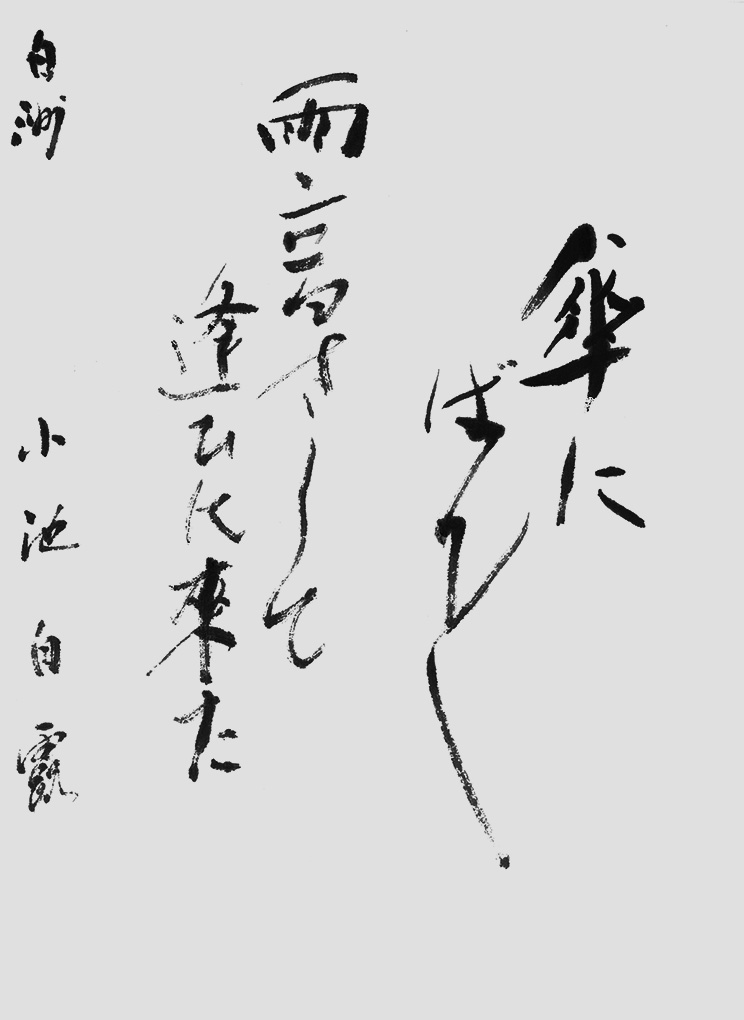 傘に
ばり〱
雨音さして
逢ひに來た
白洲 小池